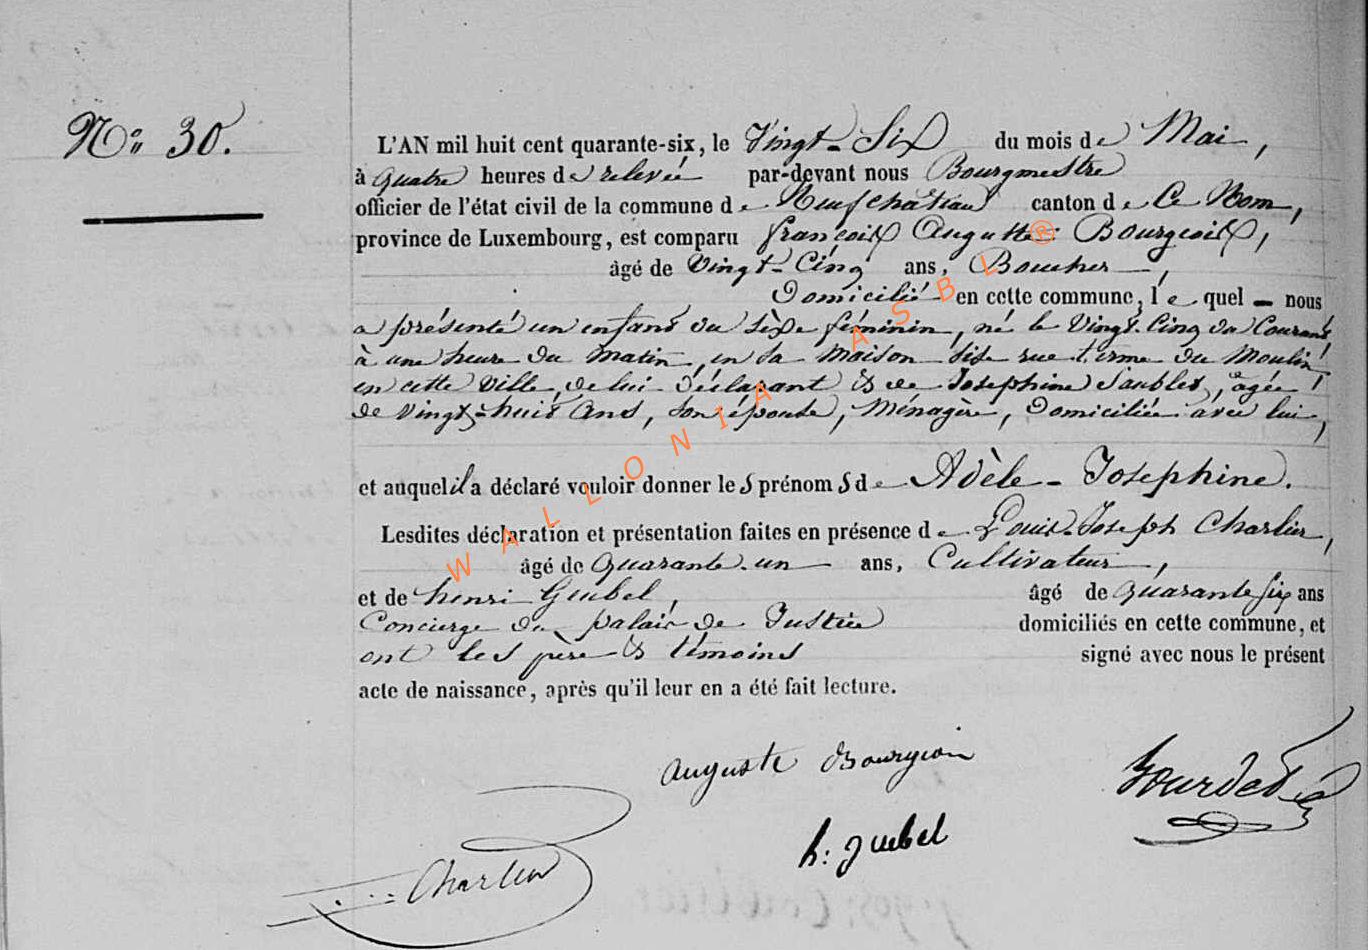 N° 30.
L'AN mil huit cent quarante-six, le Vingt-Six du mois de Mai,
à quatre heures de relevée par-devant nous Bourgmestre
officier de l'état civil de la commune de Neufchâteau canton de Ce Nom,
province de Luxembourg, est comparu françois Auguste Bourgeois,
âgé de Vingt-Cinq ans, Boucher,
Domicilié en cette commune, lequel nous
a présenté un enfant du sèxe féminin, né le Vingt-Cinq du Courant,
à une heure du matin, en sa maison sise rue terme du Moulin,
en cette Ville, de lui Déclarant & de Josephine, âgée
de Vingt-huit Ans, son épouse, Ménagère, Domiciliée avec lui,
et auquel il a déclaré vouloir donner les prénoms de Adèle-Josephine.
Lesdites déclaration et présentation faites en présence de Louis-Joseph Charlier,
âgé de quarante-un ans, Cultivateur,
et de henri Guebel, âgé de quarante six ans
Concierge du palais de Justice domiciliés en cette commune, et
ont les père & témoins signé avec nous le présent
acte de naissance, après qu'il leur en a été fait lecture.
auguste Bourgeois
Charlier
WALLONIA ASBL ®